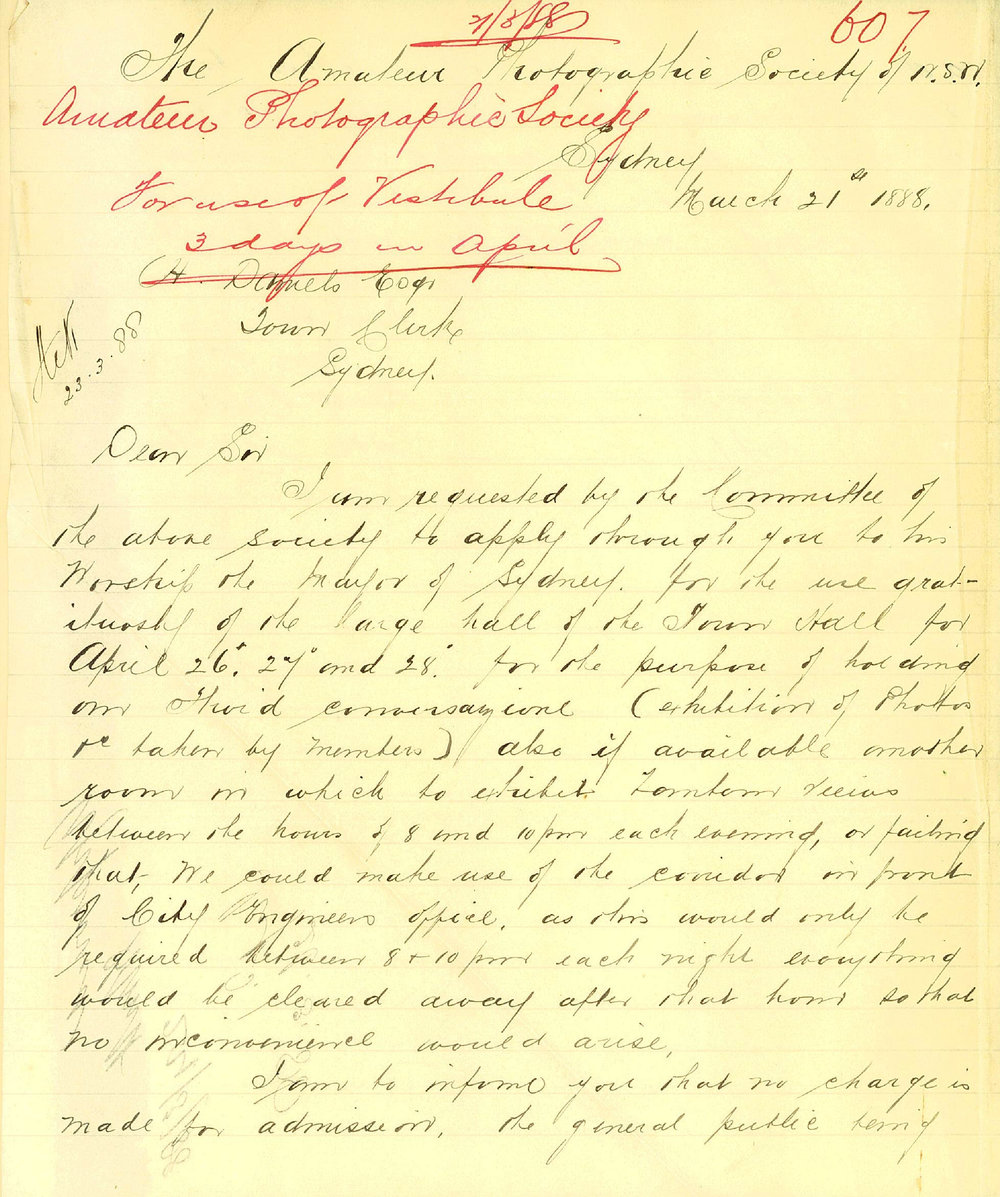 21/3/88
607
The Amateur Photographic Society of N.S.W.
Amateur Photographic Society
Sydney
For use of Vestibule
March 21st 1888.
3 days in April
H. Daniels Esqr
Town Clerk
Sydney.
23.3.88
Dear Sir
I am requested by the Committee of
the above society to apply through you to his
Worship the Mayor of Sydney. for the use grat-
ituosly of the large hall of the Town Hall for
April 26". 27" and 28". for the purpose of holding
our Third conversazione (exhibition of Photos
&c taken by members) also if available another
room in which to exhibit Lantern Views
between the hours of 8 and 10 pm each evening, or failing
that, We could make use of the corridor in front
of City Engineers office, as this would only be
required between 8 + 10 pm each night everything
would be cleared away after that hour so that
no inconvenience would arise,
I am to inform you that no charge is
made for admission, the general public being